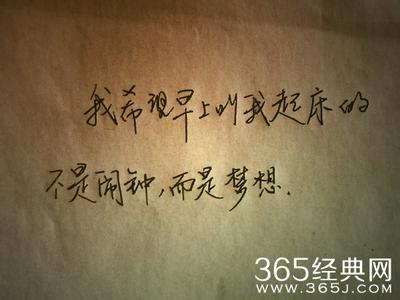 我希望早上叫我起床的
不是闹钟,而是梦想.
365经典网
WWW.365J.COM